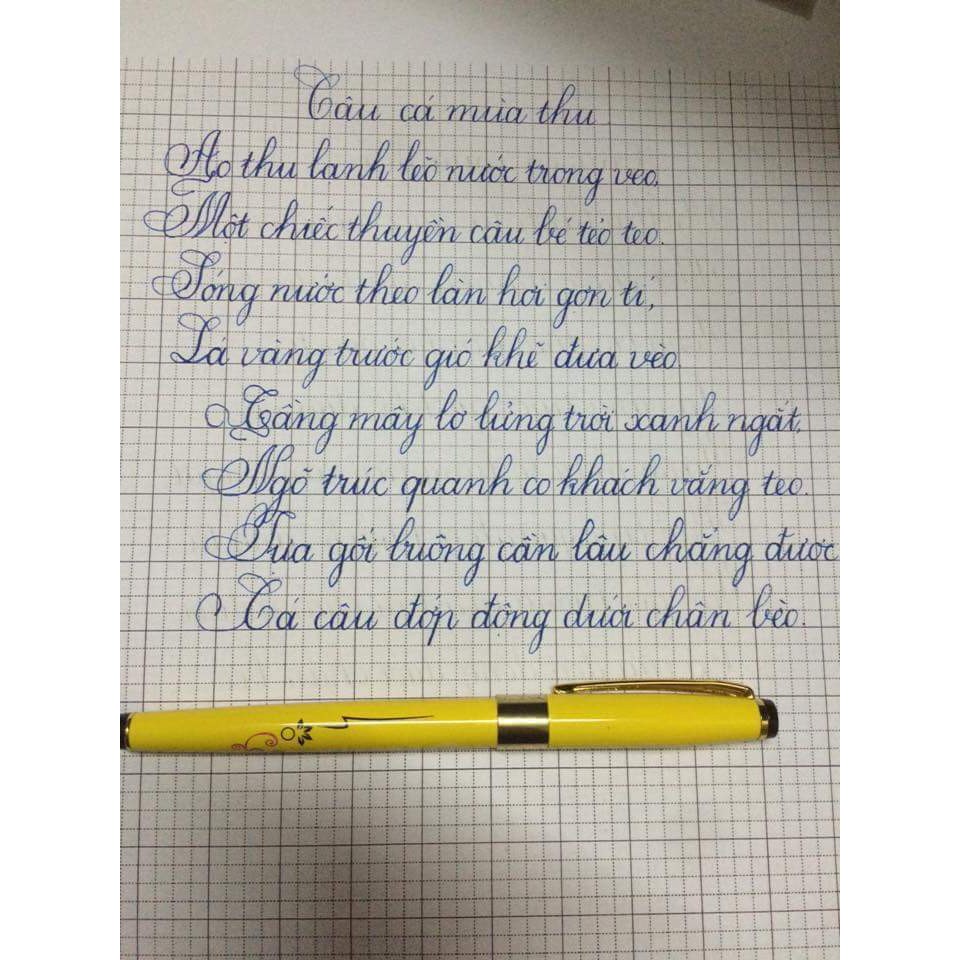 Câu cá mùa thu
Ao thu lạnh lẽo nước trong veo,
Một chiếc thuyền câu bé tẻo teo.
Sóng nước theo làn hơi gợn tí,
Lá vàng trước gió khẽ đưa vèo.
Tầng mây lơ lửng trời xanh ngắt,
Ngõ trúc quanh co khách vắng teo.
Tựa gối buông cần lâu chẳng được
Cá câu đớp động dưới chân bèo.